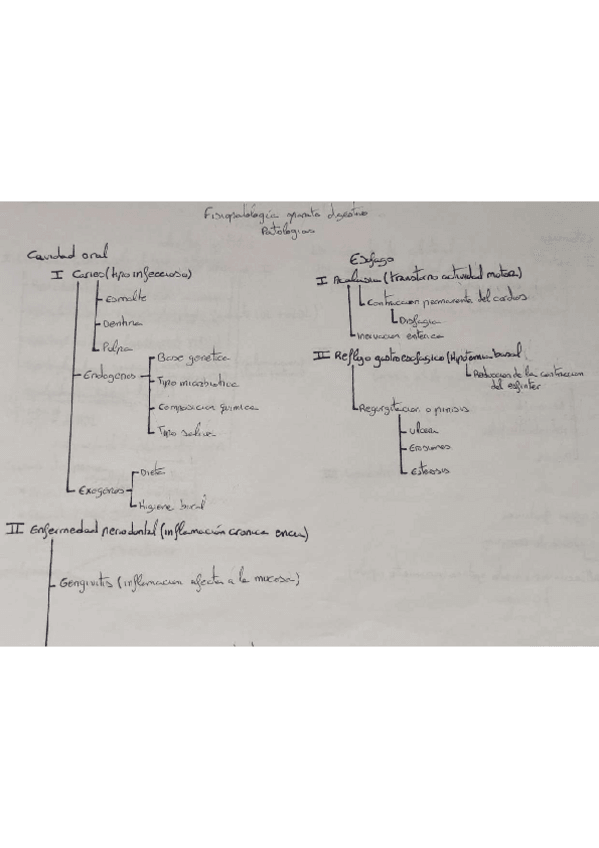 Fisiopatologia aparato digestivo
Patologias
Cavidad oral
I Caries (tipo infeccioso)
Esmalte
Dentina
Pulpa
Endogenos
Base genetica
Tipo microbiotica
Composicion quimica
Tipo saliva
Exogenos
Dieta
Higiene bucal
II Enfermedad periodontal (inflamación cronica encia)
Gengivitis (inflamacion afecta a la mucosa)
Esofago
I Acalasia (transtorno actividad motora)
Contraccion permanente del cardias
Disfagia
Inervacion enterica
II Reflujo gastroesofagico (Hipotonia basal
Reduccion de la contraccion
del esfinter
Regurgitacion o pirosis
ulcera
Erosiones
Estenosis